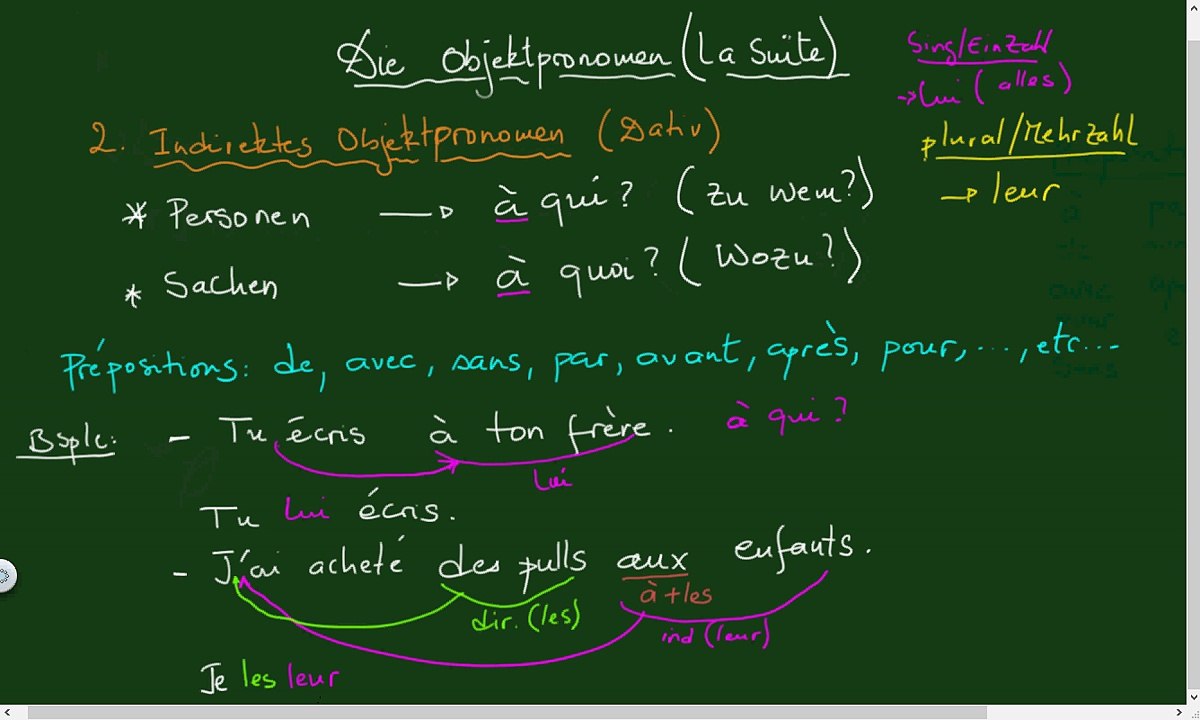 Die Objektpronomen (La Suite)
Sing/Einzahl
→ Lui (alles)
plural/Mehrzahl
→ leur
2. Indirektes Objektpronomen (Dativ)
* Personen → à qui? (zu wem?)
* Sachen → à quoi? (Wozu?)
Prépositions: de, avec, sans, par, avant, après, pour, ..., etc...
Bsple: - Tu écris à ton frère. à qui?
Lui
Tu Lui écris.
- J'ai acheté des pulls aux enfants.
à+les
dir. (les)
ind (leur)
Je les leur